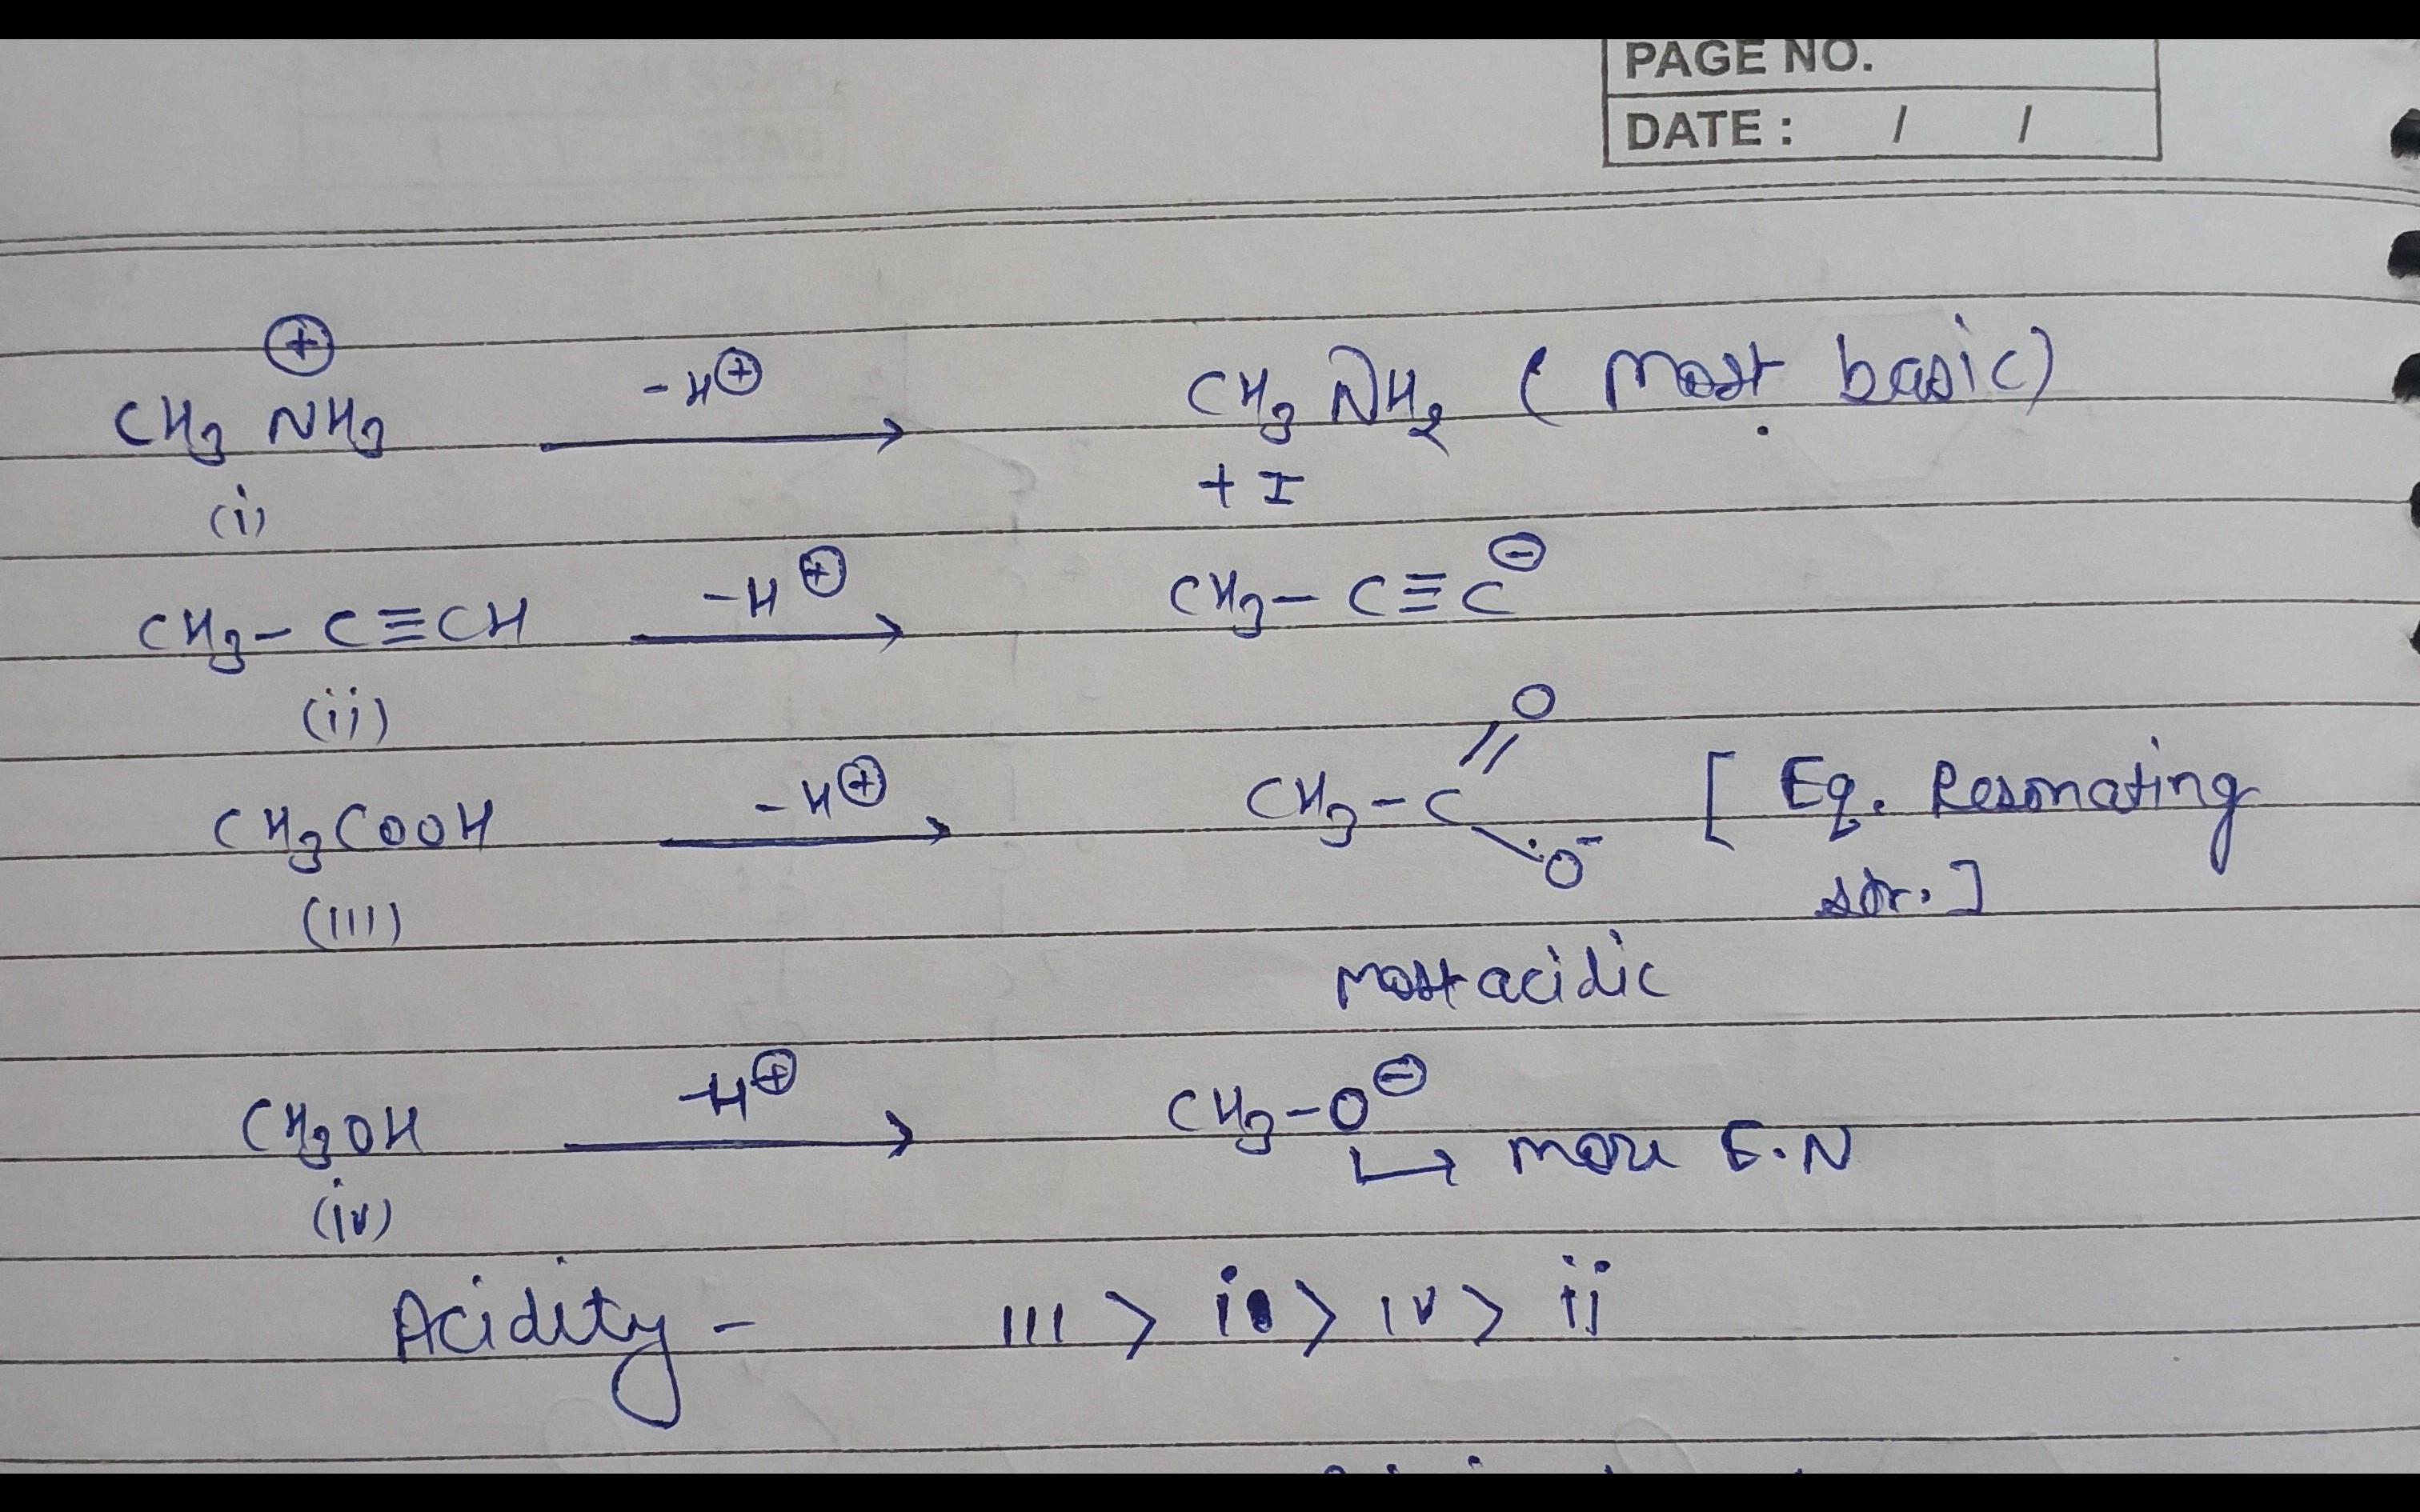 PAGE NO.
DATE : / /
⊕
CH3 NH3 -H⊕ → CH3 NH2 (Most basic)
(i) + I
CH3 - C≡CH -H⊕ → CH3 - C≡C⊖
(ii)
O
CH3COOH -H⊕ → CH3 - C [Eq. Resonating
O⁻ str.]
(III)
most acidic
CH3OH -H⊕ → CH3-O⊖
↳ more E.N
(iv)
Acidity - III > i > IV > ii